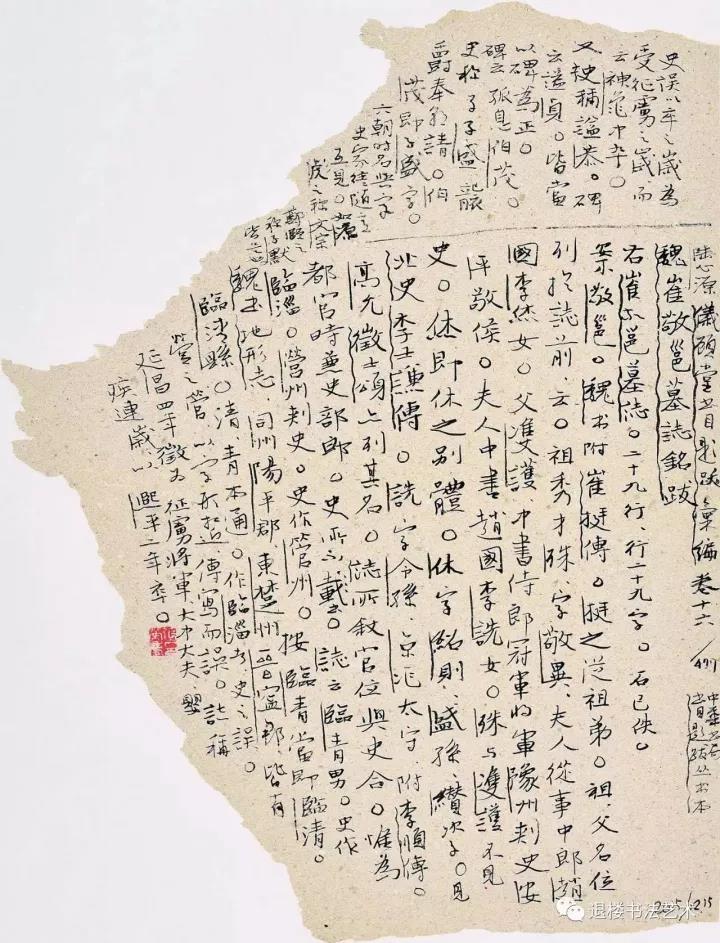 陆心源 儀顧堂書目題跋彙編 卷十六/491 中華書局 書目題跋丛书本
魏崔敬邕墓誌銘跋
右崔敬邕墓誌。二十九行、行二十九字。石已佚。
案敬邕。魏书附崔挺傳。挺之從祖弟。祖、父名位
列於誌前、云。祖秀才殊、字敬異、夫人從事中郎趙
國李烋女。父雙護中書侍郎冠軍將軍豫州刺史安
平敬侯。夫人中書趙國李詵女。殊与雙護不見
史。烋即休之别體。休字紹則、盛孫、纘次子。見
北史李士謙傳。詵、字令孫、京兆太守、附李順傳。
高允徵士頌上列其名。誌所敘官位與史合。惟為
都官時兼吏部郎。史所不載。誌云臨青男。史作
臨淄。營州刺史。史作管州。按臨青當即臨清。
魏书地形志、司州陽平郡、東楚州晋寧郡皆有
臨清縣。清青古通。作臨淄者史之誤。
營之管以字形相近、傳寫而誤。誌稱
延昌四年徵为征虜將軍大中大夫 嬰
疾連歲、以熙平二年卒。
史误以卒之歲為
受征虜之歲、而
云神龜中卒。
又史稱謚恭。碑
云謚貞。皆當
以碑為正。
碑云孤息伯茂。
史称子子盛襲
爵奉朝請。伯
茂即子盛字。
六朝時名與字
史家往往随意
互見。
鄭羲之
2015/12/5
退楼书法艺术